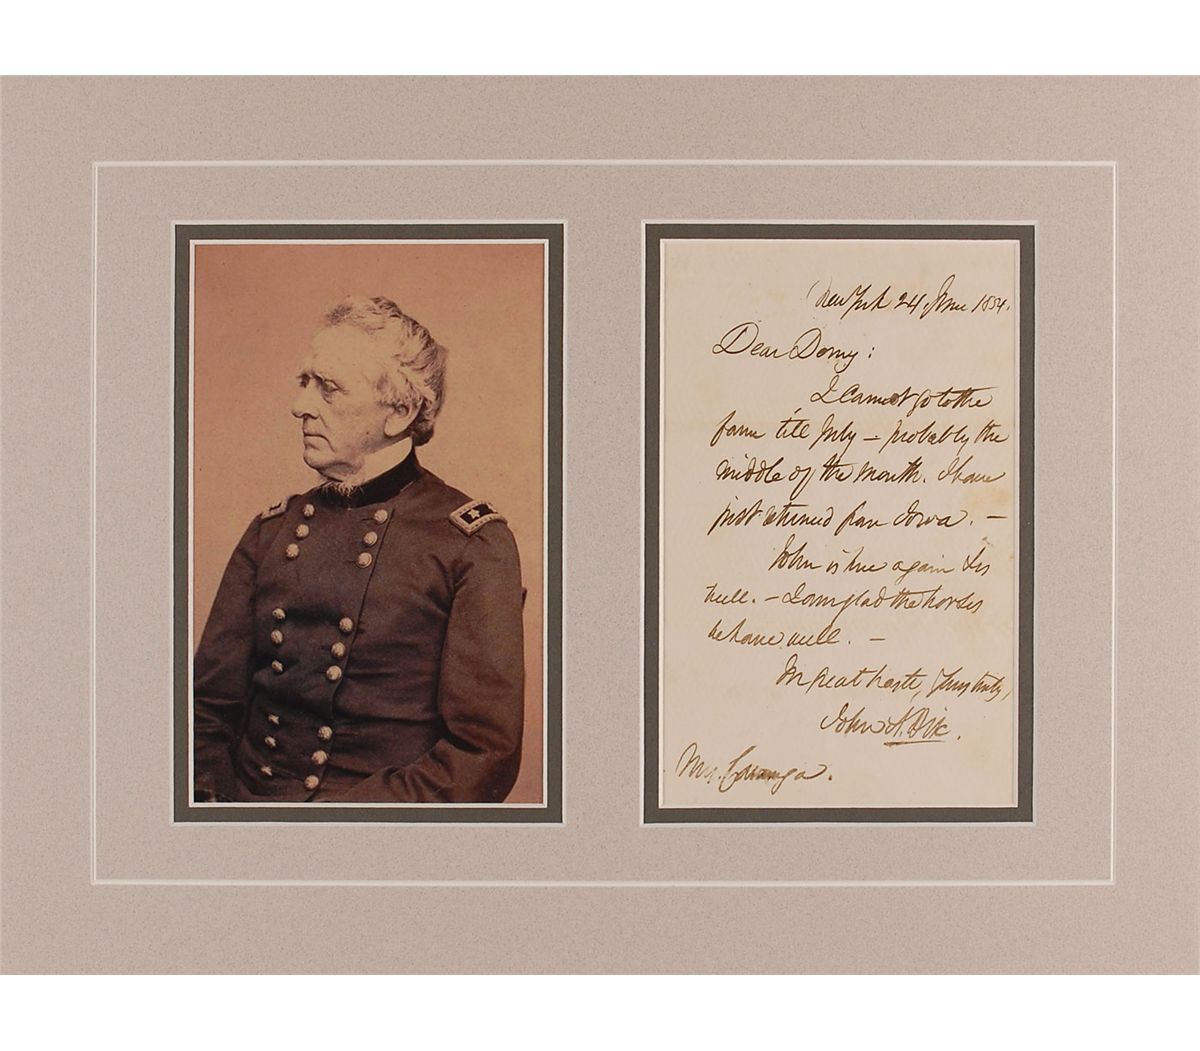 New York 24, June 1854.
Dear Domy:
I cannot go to the
farm till July – probably the
middle of the month. I have
just returned from Iowa. –
John is here again & is
well. – I am glad the horses
behave well. –
In great haste, Yours truly,
John A. Dix.
Mr.